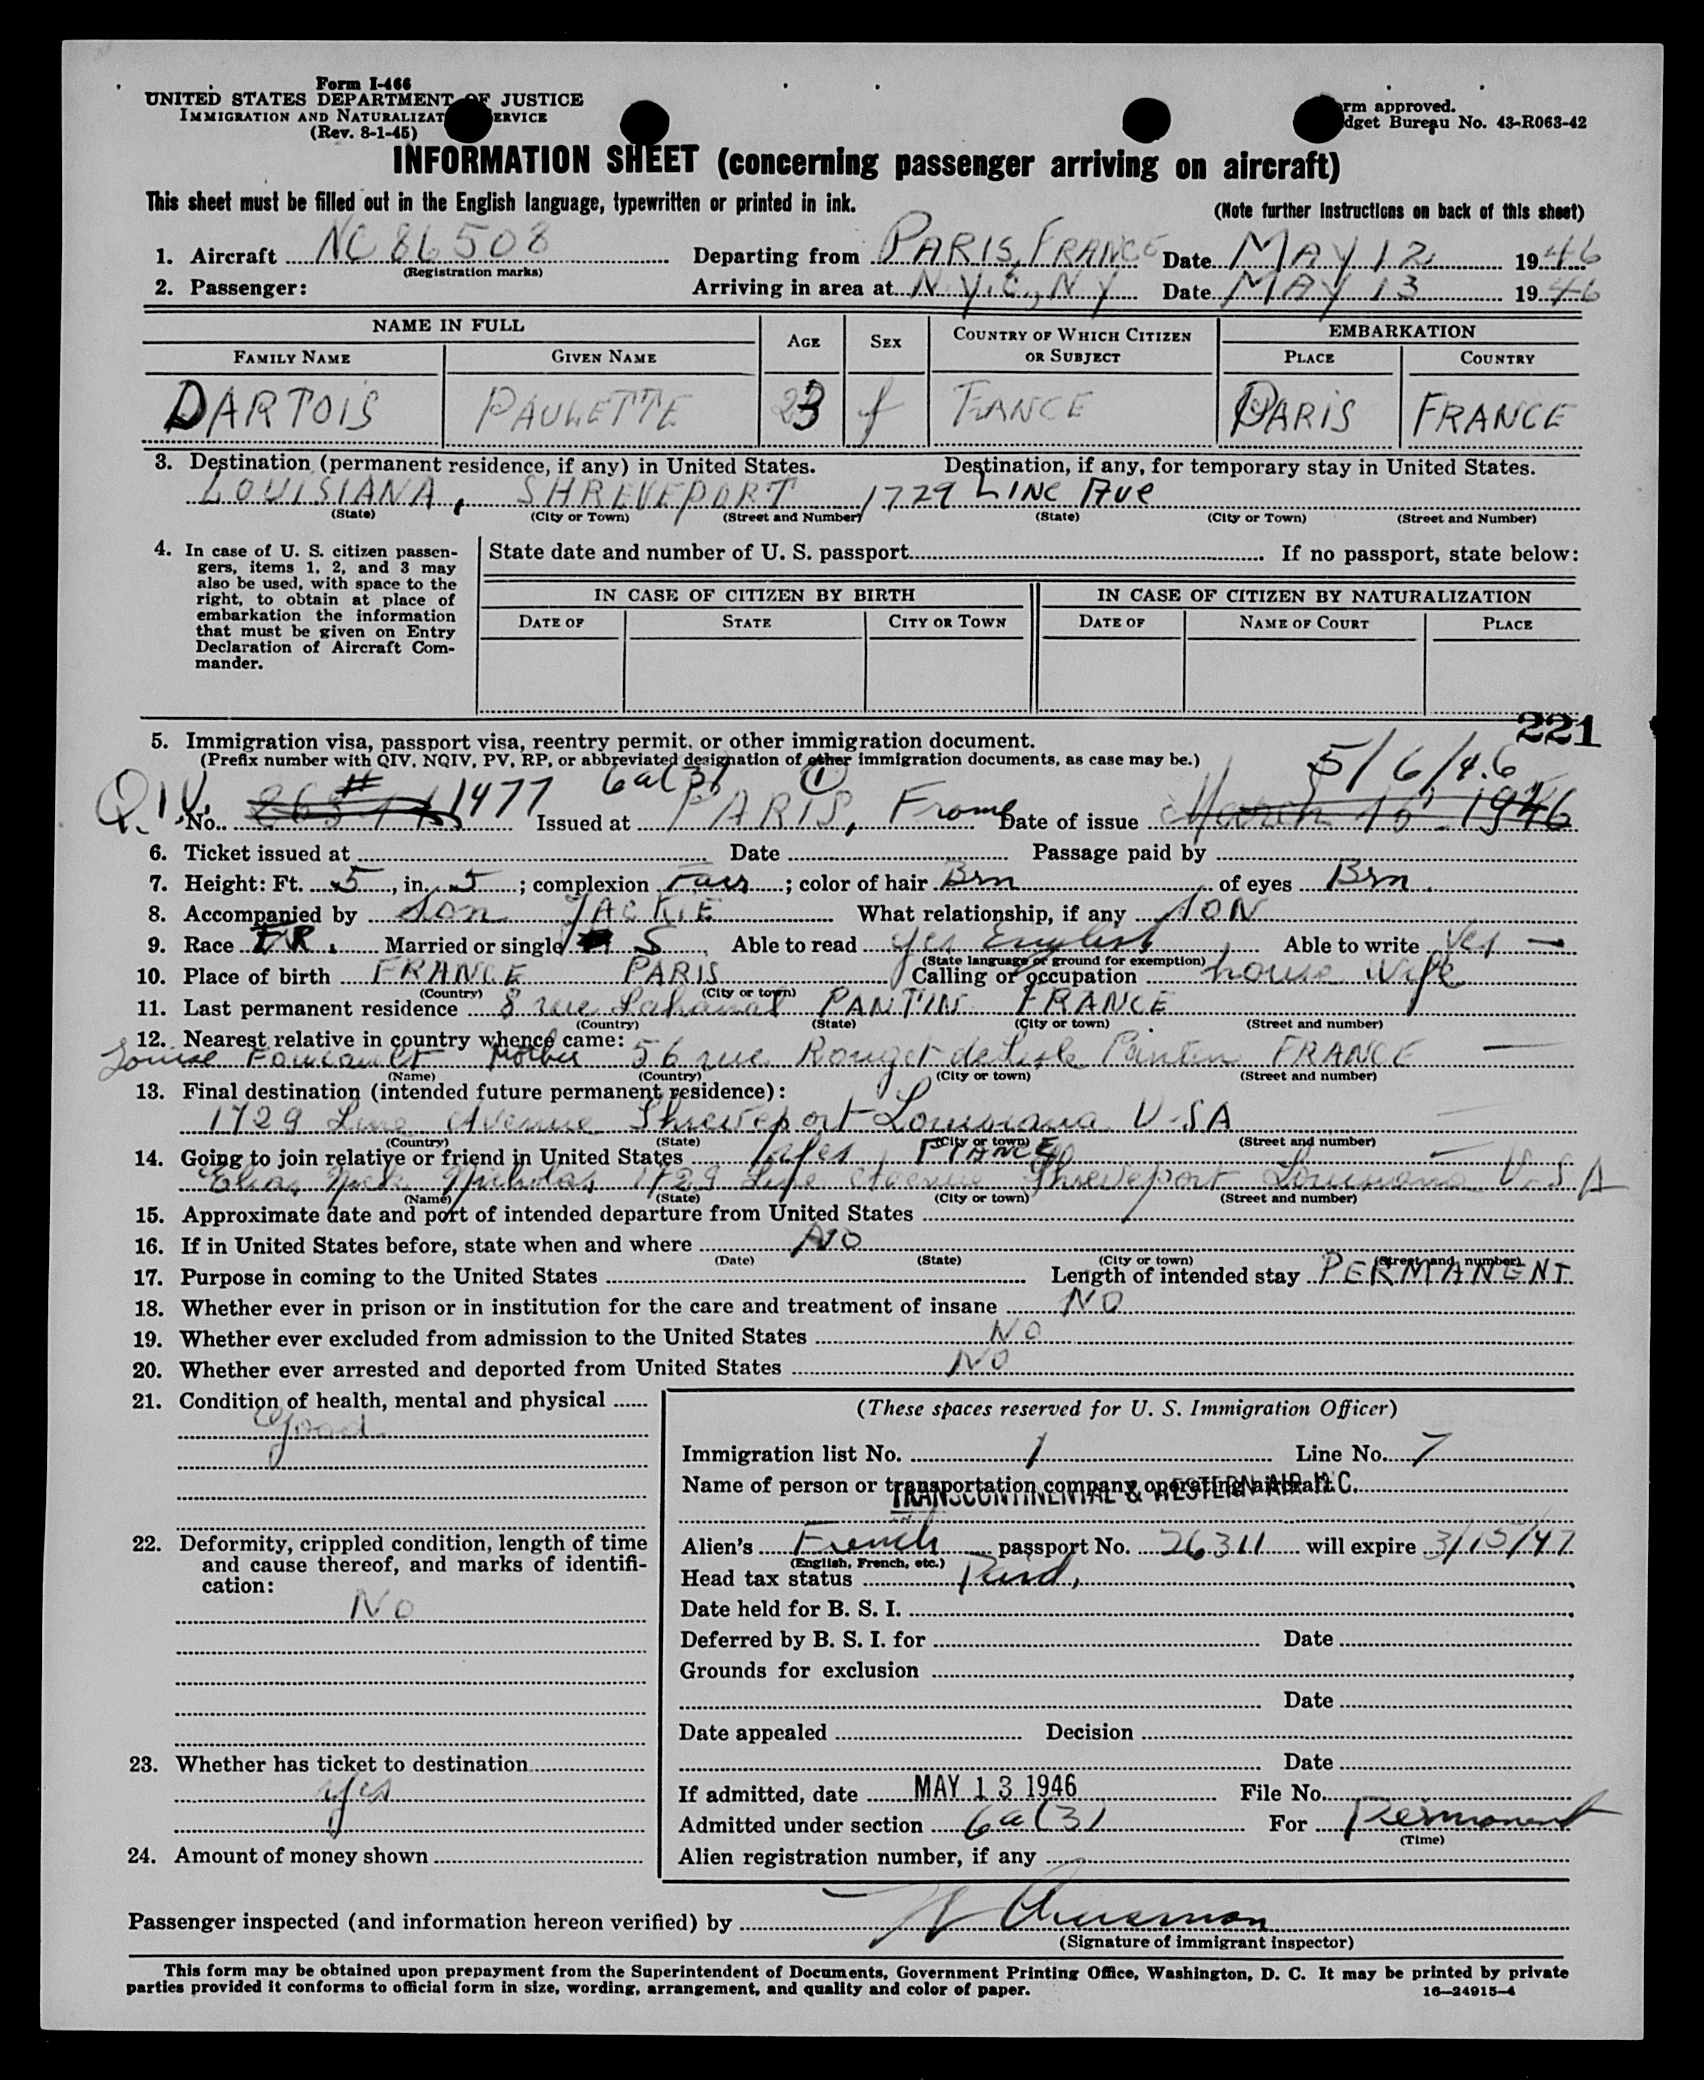 Form I-466
UNITED STATES DEPARTMENT OF JUSTICE
IMMIGRATION AND NATURALIZATION SERVICE
(Rev. 8-1-45)
Form approved.
Budget Bureau No. 43-R063-42
INFORMATION SHEET (concerning passenger arriving on aircraft)
This sheet must be filled out in the English language, typewritten or printed in ink.
(Note further instructions on back of this sheet)
1. Aircraft NC 86508 Departing from PARIS, FRANCE Date MAY 12 1946
(Registration marks)
2. Passenger: Arriving in area at N.Y.C., N.Y Date MAY 13 1946
NAME IN FULL AGE SEX COUNTRY OF WHICH CITIZEN OR SUBJECT EMBARKATION
FAMILY NAME GIVEN NAME PLACE COUNTRY
DARTOIS PAULETTE 23 f FRANCE PARIS FRANCE
3. Destination (permanent residence, if any) in United States. Destination, if any, for temporary stay in United States.
LOUISIANA, SHREVEPORT 1729 LINE AVE
(State) (City or Town) (Street and Number) (State) (City or Town) (Street and Number)
4. In case of U. S. citizen passengers, items 1, 2, and 3 may also be used, with space to the right, to obtain at place of embarkation the information that must be given on Entry Declaration of Aircraft Commander.
State date and number of U. S. passport If no passport, state below:
IN CASE OF CITIZEN BY BIRTH IN CASE OF CITIZEN BY NATURALIZATION
DATE OF STATE CITY OR TOWN DATE OF NAME OF COURT PLACE
221
5. Immigration visa, passport visa, reentry permit, or other immigration document.
(Prefix number with QIV, NQIV, PV, RP, or abbreviated designation of other immigration documents, as case may be.)
6a(3) 1 5/6/46
Q.I.V. No. # 1477 Issued at PARIS, France Date of issue March 15 1946
6. Ticket issued at Date Passage paid by
7. Height: Ft. 5, in. 5; complexion Fair; color of hair Brn of eyes Brn
8. Accompanied by son JACKIE What relationship, if any SON
9. Race FR. Married or single S Able to read yes English Able to write Yes —
(State language or ground for exemption)
10. Place of birth FRANCE PARIS Calling or occupation house wife
(Country) (City or town)
11. Last permanent residence 8 rue Lakanal PANTIN FRANCE
(Country) (State) (City or town) (Street and number)
12. Nearest relative in country whence came:
Louise Foucault Mother 56 rue Rouget de Lisle Pantin FRANCE —
(Name) (Country) (City or town) (Street and number)
13. Final destination (intended future permanent residence):
1729 Line Avenue Shreveport Louisiana U-SA
(Country) (State) (City or town) (Street and number)
14. Going to join relative or friend in United States Yes FIANCE
Elias Nick Nicholas 1729 Line Avenue Shreveport Louisiana U.SA
(Name) (State) (City or town) (Street and number)
15. Approximate date and port of intended departure from United States
16. If in United States before, state when and where NO
(Date) (State) (City or town) (Street and number)
17. Purpose in coming to the United States Length of intended stay PERMANENT
18. Whether ever in prison or in institution for the care and treatment of insane NO
19. Whether ever excluded from admission to the United States NO
20. Whether ever arrested and deported from United States NO
21. Condition of health, mental and physical
Good
22. Deformity, crippled condition, length of time and cause thereof, and marks of identification:
No
23. Whether has ticket to destination
yes
24. Amount of money shown
(These spaces reserved for U. S. Immigration Officer)
Immigration list No. 1 Line No. 7
Name of person or transportation company operating aircraft
TRANSCONTINENTAL & WESTERN AIR INC.
Alien's French passport No. 26311 will expire 3/15/47
(English, French, etc.)
Head tax status Paid,
Date held for B. S. I.
Deferred by B. S. I. for Date
Grounds for exclusion
Date
Date appealed Decision
Date
If admitted, date MAY 13 1946 File No.
Admitted under section 6a(3) For Permanent
(Time)
Alien registration number, if any
Passenger inspected (and information hereon verified) by
(Signature of immigrant inspector)
This form may be obtained upon prepayment from the Superintendent of Documents, Government Printing Office, Washington, D. C. It may be printed by private
parties provided it conforms to official form in size, wording, arrangement, and quality and color of paper.
16—24915-4